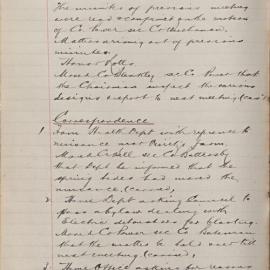 The minutes of previous meeting
were read & confirmed on the motion
of Co. Power sec Co
Matters arising out of previous
minutes.
Honor Rolls
Moved Co Brantley sec Co Power that
the Chairman inspect the various
designs & report to next meeting (car'd)
Correspondence
1. From Health Dept with reference to
nuisance near
Moved Co Bell sec Co Battersby
that Dept be informed that the
spring tides had moved the
nuisance. (carried)
2. Home Dept asking Council to
pass a by law dealing with
Electric detonators for blasting.
Moved Co Power sec Co Bateman
that the matter be held over till
next meeting. (carried)
3. Home Office asking for reasons